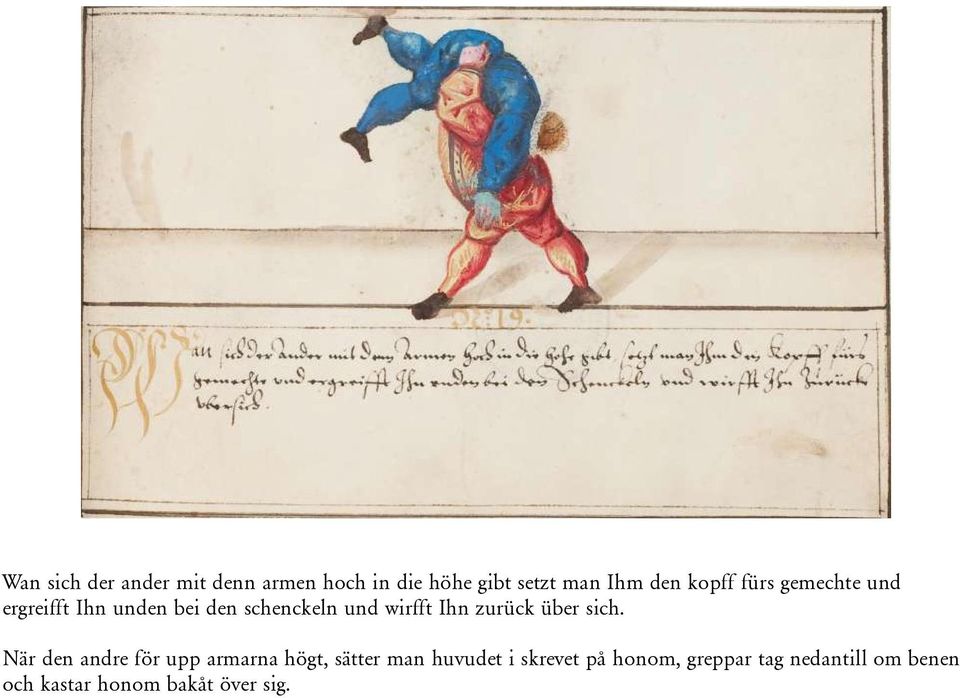 N: 19.
Wan sich der Ander mit denn Armen hoch in die hohe gibt, setzt man Ihm den Kopff fürs
gemechte und ergreifft Ihn unden bei den Schenckeln und wirfft Ihn Zurück
vbersich.
Wan sich der ander mit denn armen hoch in die höhe gibt setzt man Ihm den kopff fürs gemechte und
ergreifft Ihn unden bei den schenckeln und wirfft Ihn zurück über sich.
När den andre för upp armarna högt, sätter man huvudet i skrevet på honom, greppar tag nedantill om benen
och kastar honom bakåt över sig.